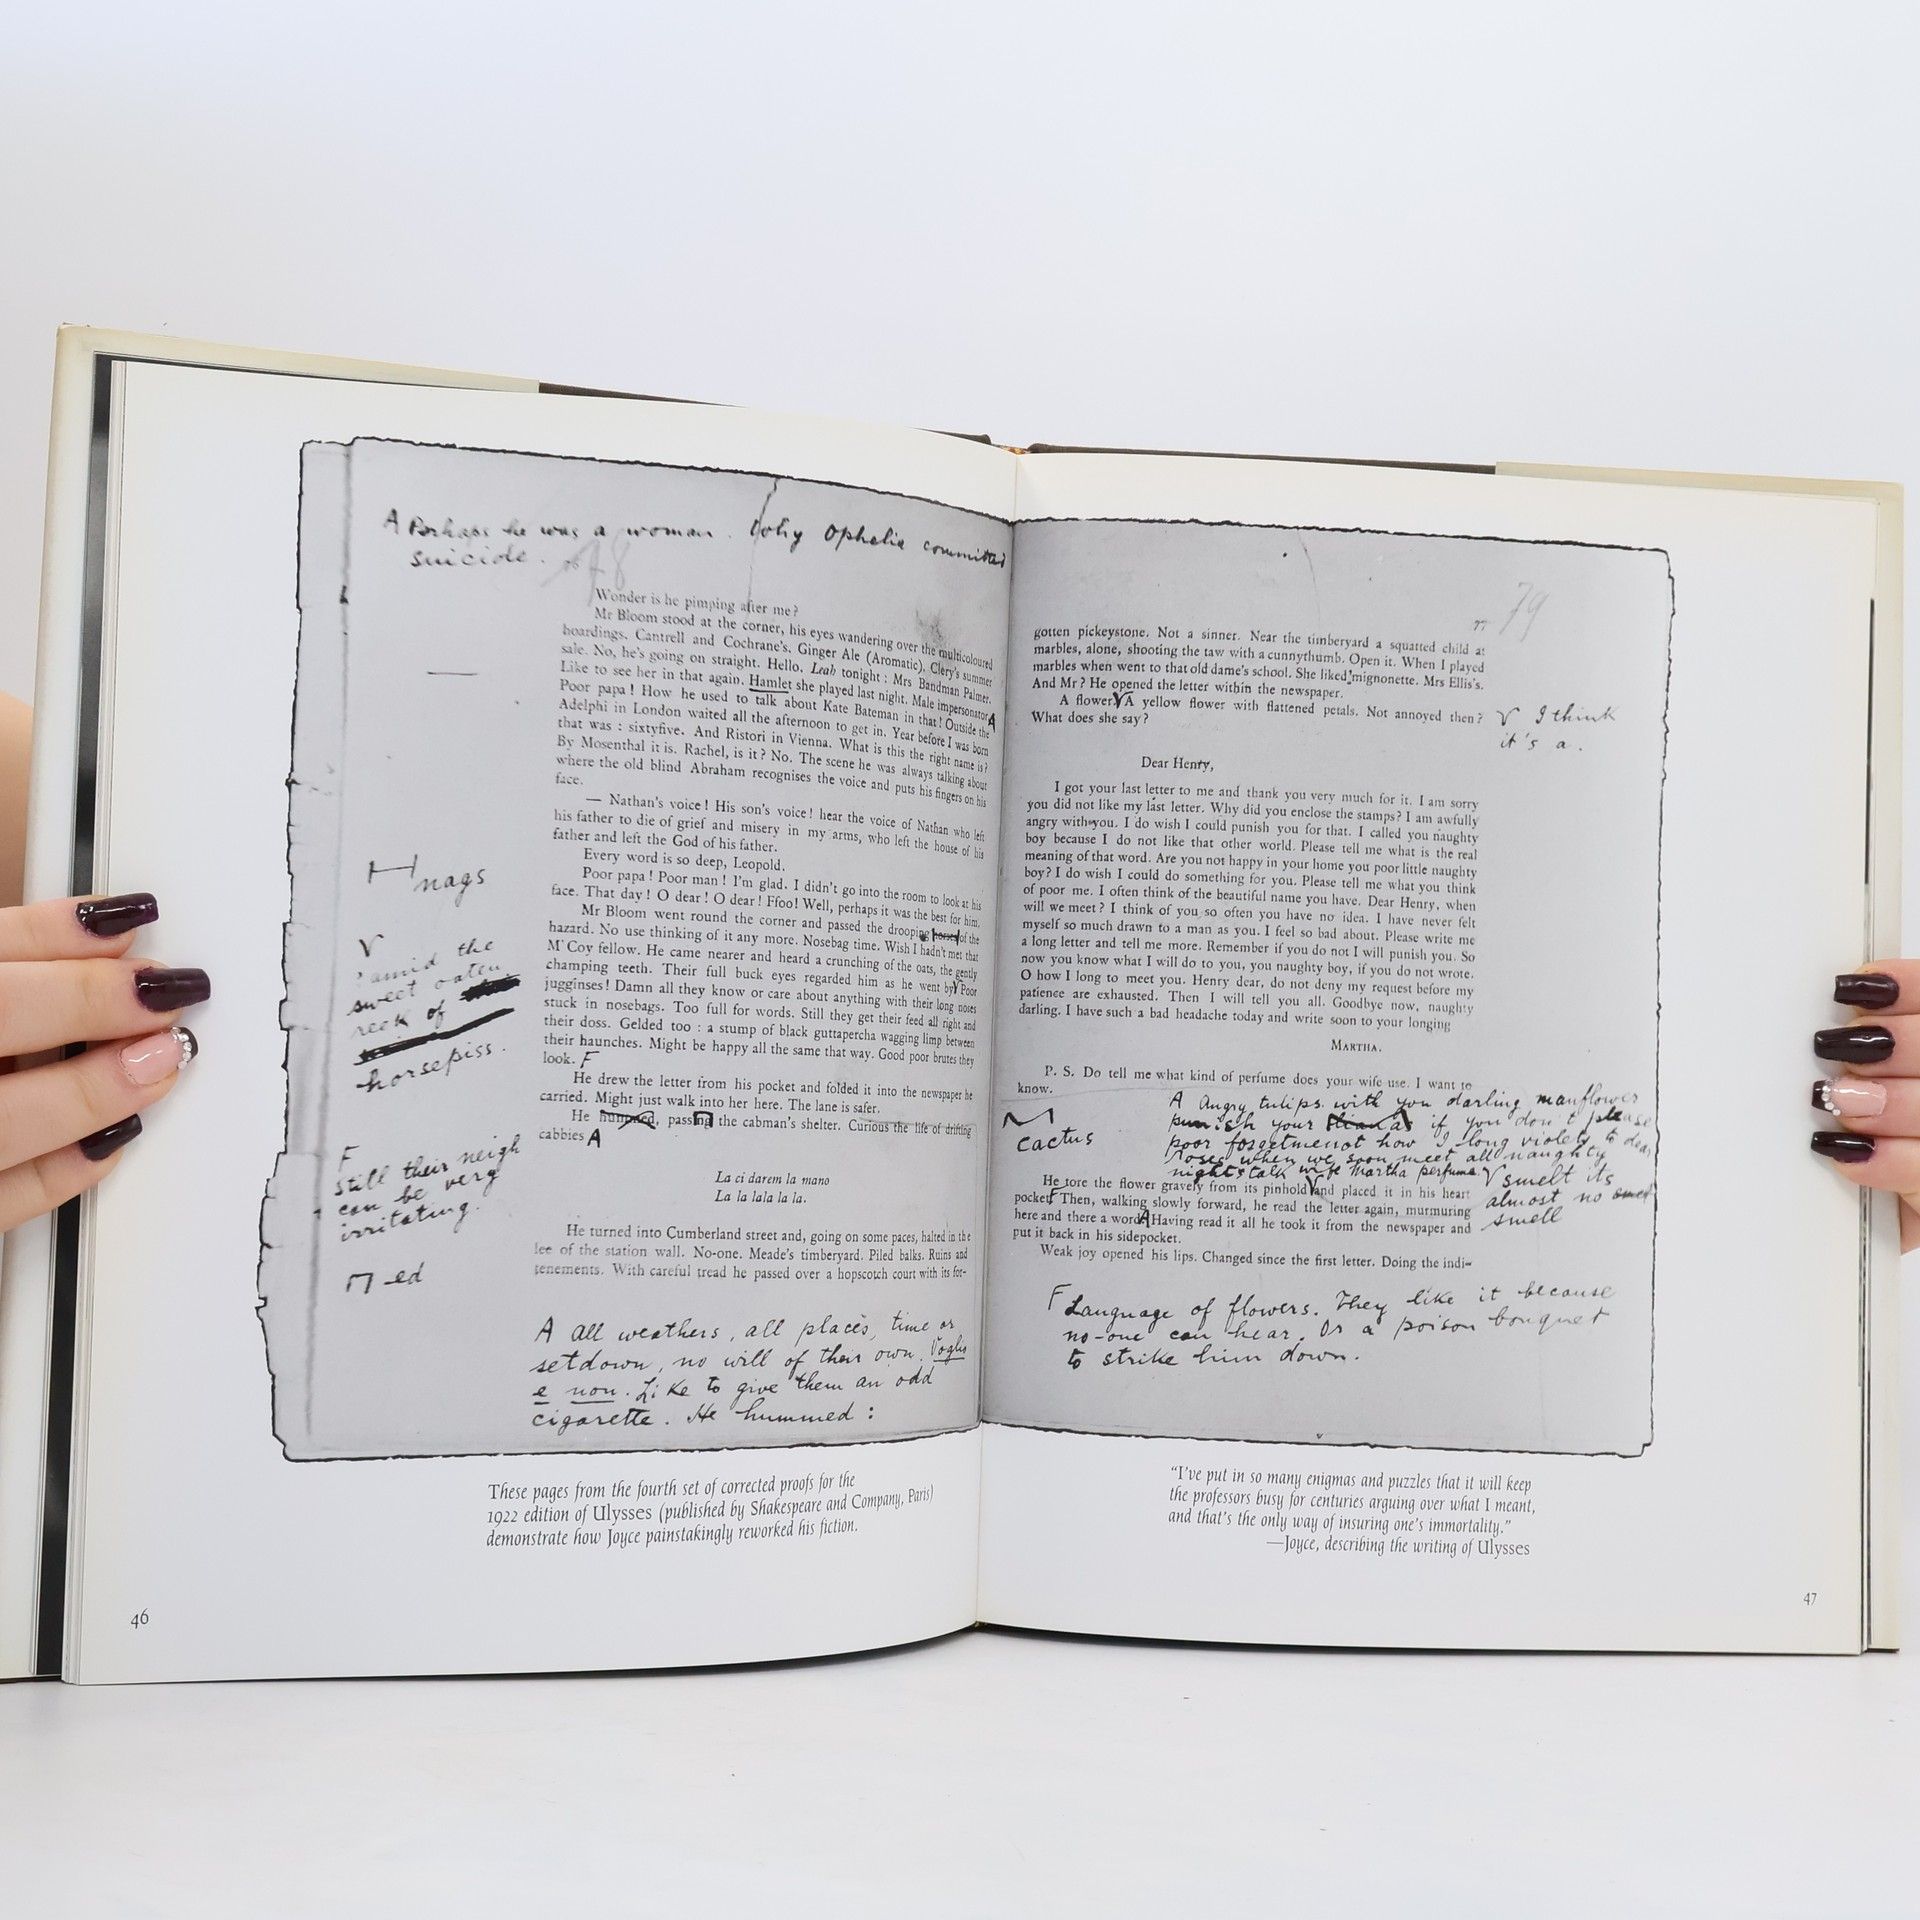 A Perhaps he was a woman. Why Ophelia committed
suicide.
78
Wonder is he pimping after me?
Mr Bloom stood at the corner, his eyes wandering over the multicoloured
hoardings. Cantrell and Cochrane's. Ginger Ale (Aromatic). Clery's summer
sale. No, he's going on straight. Hello. Leah tonight : Mrs Bandman Palmer.
Like to see her in that again. Hamlet she played last night. Male impersonator A
Poor papa! How he used to talk about Kate Bateman in that! Outside the
Adelphi in London waited all the afternoon to get in. Year before I was born
that was : sixtyfive. And Ristori in Vienna. What is this the right name is?
By Mosenthal it is. Rachel, is it? No. The scene he was always talking about
where the old blind Abraham recognises the voice and puts his fingers on his
face.
— Nathan's voice! His son's voice! hear the voice of Nathan who left
his father to die of grief and misery in my arms, who left the house of his
father and left the God of his father.
Every word is so deep, Leopold.
Poor papa! Poor man! I'm glad. I didn't go into the room to look at his
face. That day! O dear! O dear! Ffoo! Well, perhaps it was the best for him.
Mr Bloom went round the corner and passed the drooping horses of the
hazard. No use thinking of it any more. Nosebag time. Wish I hadn't met that
M'Coy fellow. He came nearer and heard a crunching of the oats, the gently
champing teeth. Their full buck eyes regarded him as he went by V Poor
jugginses! Damn all they know or care about anything with their long noses
stuck in nosebags. Too full for words. Still they get their feed all right and
their doss. Gelded too : a stump of black guttapercha wagging limp between
their haunches. Might be happy all the same that way. Good poor brutes they
look. F
He drew the letter from his pocket and folded it into the newspaper he
carried. Might just walk into her here. The lane is safer.
He hummed, passing the cabman's shelter. Curious the life of drifting
cabbies A
La ci darem la mano
La la lala la la.
He turned into Cumberland street and, going on some paces, halted in the
lee of the station wall. No-one. Meade's timberyard. Piled balks. Ruins and
tenements. With careful tread he passed over a hopscotch court with its for-
nags
V
amid the
sweet oaten
reek of
horsepiss.
F
Still their neigh
can be very
irritating.
ed
A All weathers, all places, time or
setdown, no will of their own. Voglio
e non. Like to give them an odd
cigarette. He hummed :
These pages from the fourth set of corrected proofs for the
1922 edition of Ulysses (published by Shakespeare and Company, Paris)
demonstrate how Joyce painstakingly reworked his fiction.
46
77
79
gotten pickeystone. Not a sinner. Near the timberyard a squatted child at
marbles, alone, shooting the taw with a cunnythumb. Open it. When I played
marbles when went to that old dame's school. She liked mignonette. Mrs Ellis's.
And Mr? He opened the letter within the newspaper.
A flower. V A yellow flower with flattened petals. Not annoyed then?
What does she say?
V I think
it's a.
Dear Henry,
I got your last letter to me and thank you very much for it. I am sorry
you did not like my last letter. Why did you enclose the stamps? I am awfully
angry with you. I do wish I could punish you for that. I called you naughty
boy because I do not like that other world. Please tell me what is the real
meaning of that word. Are you not happy in your home you poor little naughty
boy? I do wish I could do something for you. Please tell me what you think
of poor me. I often think of the beautiful name you have. Dear Henry, when
will we meet? I think of you so often you have no idea. I have never felt
myself so much drawn to a man as you. I feel so bad about. Please write me
a long letter and tell me more. Remember if you do not I will punish you. So
now you know what I will do to you, you naughty boy, if you do not wrote.
O how I long to meet you. Henry dear, do not deny my request before my
patience are exhausted. Then I will tell you all. Goodbye now, naughty
darling. I have such a bad headache today and write soon to your longing
MARTHA.
P. S. Do tell me what kind of perfume does your wife use. I want to
know.
cactus
A Angry tulips with you darling manflower
punish your if you don't please
poor forgetmenot how I long violets to dear
roses when we soon meet all naughty
nightstalk wife Martha perfume
He tore the flower gravely from its pinhold V and placed it in his heart
pocket. F Then, walking slowly forward, he read the letter again, murmuring
here and there a word. A Having read it all he took it from the newspaper and
put it back in his sidepocket.
Weak joy opened his lips. Changed since the first letter. Doing the indi-
V smelt its
almost no
smell
F Language of flowers. They like it because
no-one can hear. Or a poison bouquet
to strike him down.
"I've put in so many enigmas and puzzles that it will keep
the professors busy for centuries arguing over what I meant,
and that's the only way of insuring one's immortality."
—Joyce, describing the writing of Ulysses
47